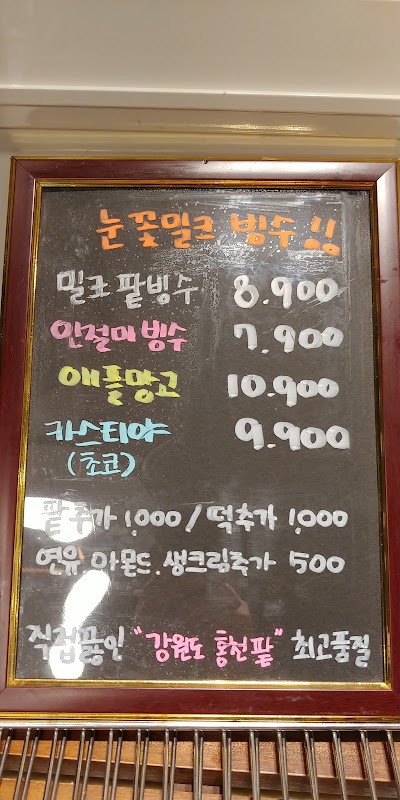 눈꽃밀크 빙수!!
밀크팥빙수 8.900
인절미빙수 7.900
애플망고 10.900
카스티야 9.900
(초코)
팥추가 1,000 / 떡추가 1,000
연유. 아몬드. 생크림추가 500
직접끓인 "강원도 홍천팥" 최고품질